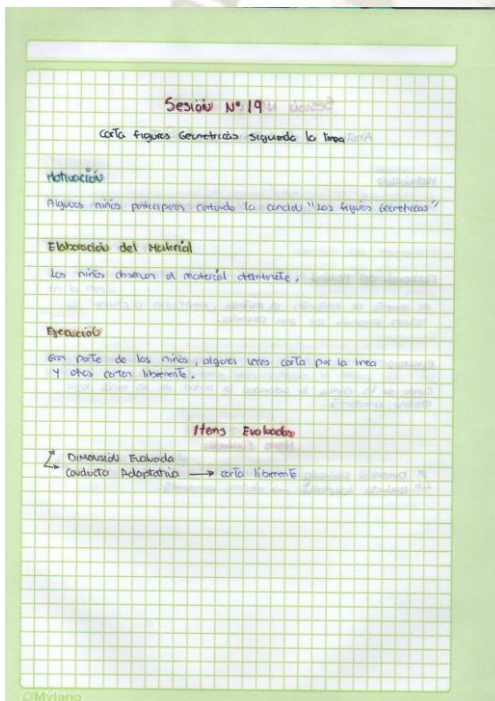 Sesión N° 19
Corta figuras Geometricas siguiendo la linea
Motivación
Algunos niños participaron cantando la canción "Las figuras Geometricas"
Elaboración del Material
Los niños observan el material atentamente.
Ejecución
Gran parte de los niños, algunas veces corta por la linea
y otros cortan libremente.
Items Evaluados
Dimensión Evaluada
Conducta Adaptativa → corta libremente
Mylano